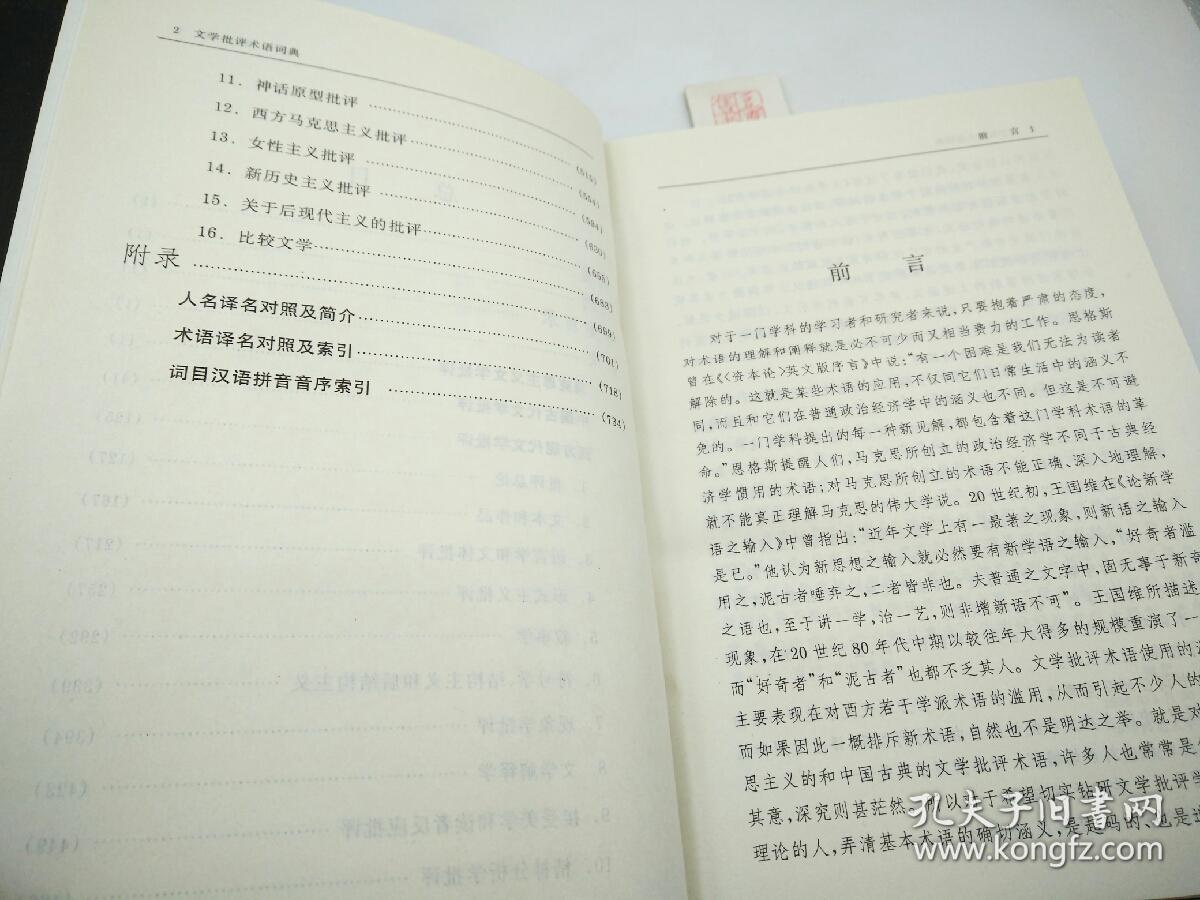 2 文学批评术语词典
11．神话原型批评 ……………………
12．西方马克思主义批评…………………(519)
13．女性主义批评 ……………………(554)
14．新历史主义批评……………………(594)
15．关于后现代主义的批评………………(630)
16．比较文学……………………(655)
附录 ……………………(683)
人名译名对照及简介……………………(699)
术语译名对照及索引……………………(701)
词目汉语拼音音序索引 ……………………(718)
(734)
前 言 1
前 言
对于一门学科的学习者和研究者来说，只要抱着严肃的态度，
对术语的理解和阐释就是必不可少而又相当费力的工作。恩格斯
曾在《〈资本论〉英文版序言》中说：“有一个困难是我们无法为读者
解除的。这就是某些术语的应用，不仅同它们日常生活中的涵义不
同，而且和它们在普通政治经济学中的涵义也不同。但这是不可避
免的。一门学科提出的每一种新见解，都包含着这门学科术语的革
命。”恩格斯提醒人们，马克思所创立的政治经济学不同于古典经
济学惯用的术语；对马克思所创立的术语不能正确、深入地理解，
就不能真正理解马克思的伟大学说。20世纪初，王国维在《论新学
语之输入》中曾指出：“近年文学上有一最著之现象，则新语之输入
是已。”他认为新思想之输入就必然要有新学语之输入，“好奇者滥
用之，泥古者唾弃之，二者皆非也。夫普通之文字中，固无事于新奇
之语也，至于讲一学，治一艺，则非增新语不可”。王国维所描述
现象，在20世纪80年代中期以较往年大得多的规模重演了一
而“好奇者”和“泥古者”也都不乏其人。文学批评术语使用的
主要表现在对西方若干学派术语的滥用，从而引起不少人的
而如果因此一概排斥新术语，自然也不是明达之举。就是对
思主义的和中国古典的文学批评术语，许多人也常常是
其意，深究则甚茫然。所以对于希望切实钻研文学批评学
理论的人，弄清基本术语的确切涵义，是起码的、也是
孔夫子旧书网
www.kongfz.com